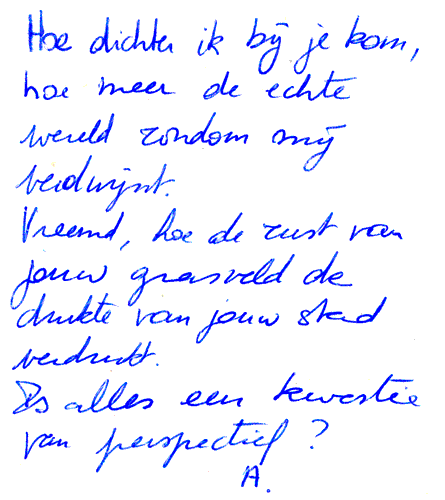 Hoe dichter ik bij je kom,
hoe meer de echte
wereld rondom mij
verdwijnt.
Vreemd, hoe de rust van
jouw grasveld de
drukte van jouw stad
verdrukt.
Is alles een kwestie
van perspectief ?
A.